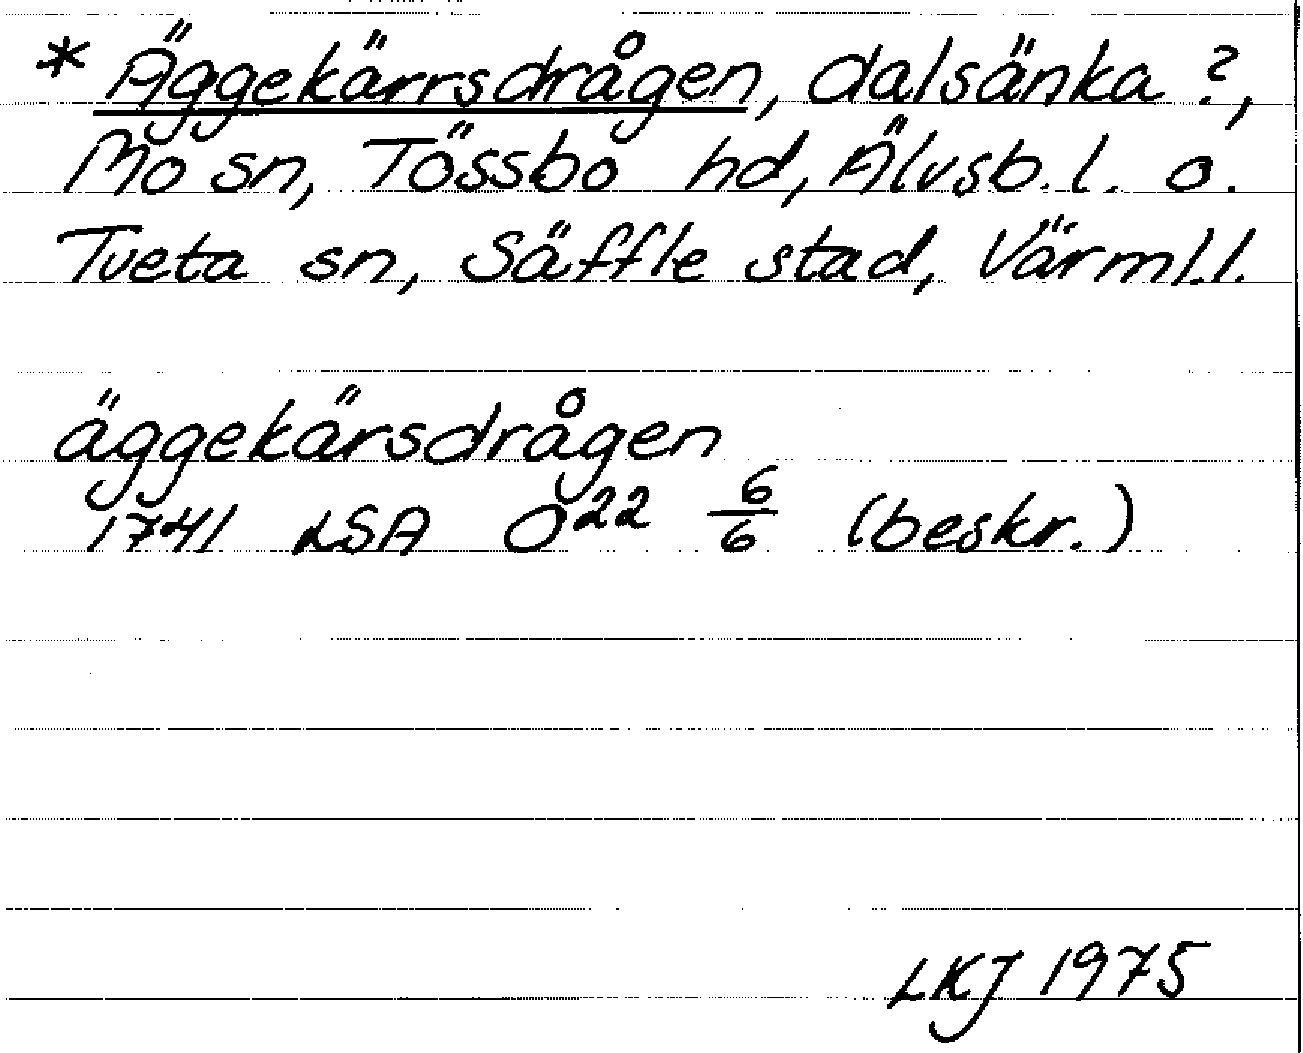 * Äggekärrsdrågen, dalsänka ?,
Mo sn, Tössbo hd, Älvsb. l. o.
Tveta sn, Säffle stad, Värml.l.
äggekärsdrågen
1741 LSA O²² 6/6 (beskr.)
LKJ 1975